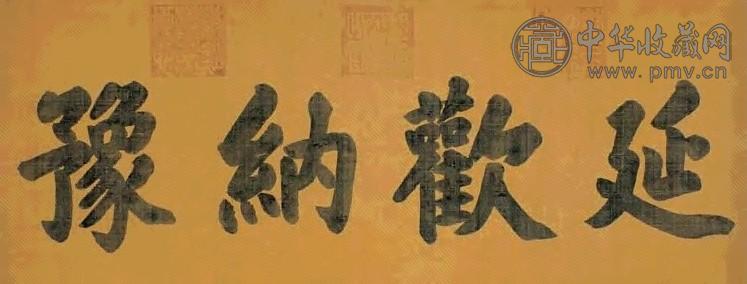 延歡納豫
中华收藏网
www.pmv.cn